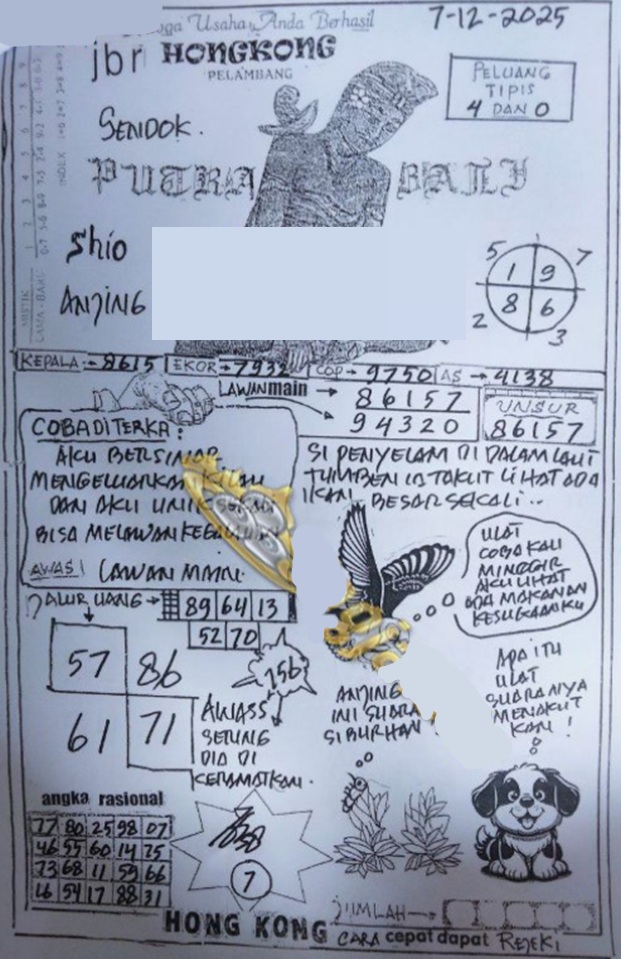 Usaha Anda Berhasil
7-12-2025
jbr HONGKONG
PELAMBANG
PELUANG
TIPIS
4 DAN 0
SENDOK.
PUTRA BALI
Shio
ANJING
5 7
1 9
8 6
2 3
KEPALA → 8615 EKOR → 7932 COP → 9750 AS → 4138
LAWAN main → 86157
94320
UNSUR
86157
COBA DITERKA:
AKU BERSINAR
MENGELUARKAN
DAN AKU UNIK
BISA MELAWAN
AWAS! LAWAN MAIN.
SI PENYELAM DI DALAM LAUT
TUMBEN IA TAKUT LIHAT ADA
IKAN BESAR SEKALI..
ULAT
COBA KAU
MINGGIR
AKU LIHAT
ADA MAKANAN
KESUKAANKU
JALUR UANG → 89 64 13
52 70
57 86
61 71
756
AWASS
SETUNG
DIA DI
KERAMATKAN.
ANJING
INI SUARA
SI BURHAN
APA ITU
ULAT
SUARANYA
MENAKUT
KAN!
angka rasional
77 80 25 98 07
46 55 60 14 75
73 68 11 59 66
16 54 17 88 31
7
JUMLAH
HONG KONG CARA cepat dapat REJEKI